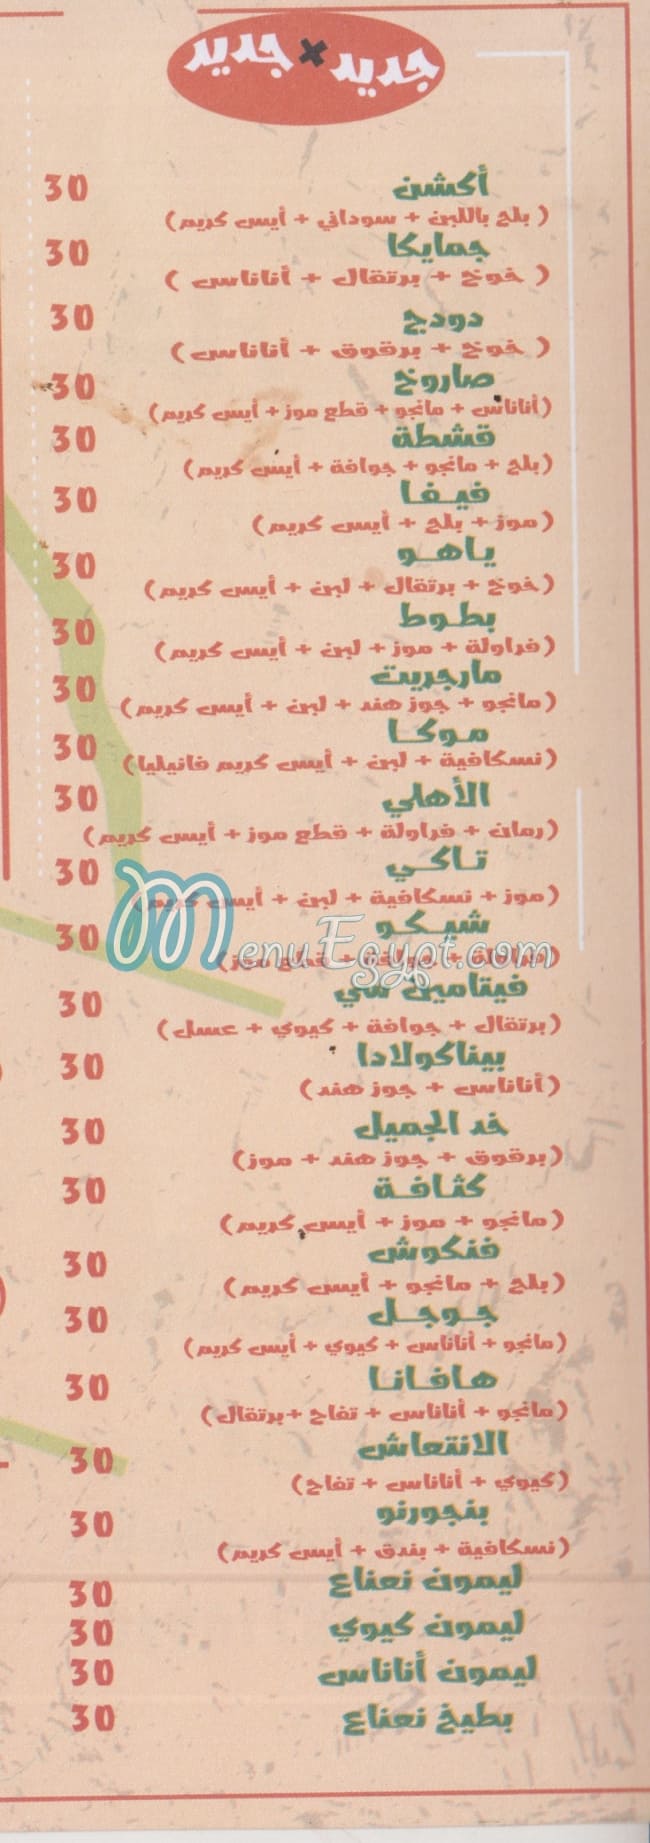 جديد × جديد
أكشن 30
( بلح باللبن + سوداني + أيس كريم)
جمايكا 30
( خوخ + برتقال + أناناس )
دودج 30
( خوخ + برقوق + أناناس)
صاروخ 30
(أناناس + مانجو + قطع موز + أيس كريم)
قشطة 30
(بلح + مانجو + جوافة + أيس كريم)
فيفا 30
(موز + بلح + أيس كريم)
ياهو 30
(خوخ + برتقال + لبن + أيس كريم)
بطوط 30
(فراولة + موز + لبن + أيس كريم)
مارجريت 30
(مانجو + جوز هند + لبن + أيس كريم)
موكا 30
(نسكافية + لبن + أيس كريم فانيليا)
الأهلي 30
(رمان + فراولة + قطع موز + أيس كريم)
تاكي 30
(موز + نسكافية + لبن + أيس كريم)
شيكو 30
MenuEgypt.com
قطع موز)
فيتامين سي 30
(برتقال + جوافة + كيوي + عسل)
بيناكولادا 30
(أناناس + جوز هند)
خد الجميل 30
(برقوق + جوز هند + موز)
كثافة 30
(مانجو + موز + أيس كريم)
فنكوش 30
(بلح + مانجو + أيس كريم)
جوجل 30
(مانجو + أناناس + كيوي + أيس كريم)
هافانا 30
(مانجو + أناناس + تفاح +برتقال)
الانتعاش 30
(كيوي + أناناس + تفاح)
بنجورنو 30
(نسكافية + بندق + أيس كريم)
ليمون نعناع 30
ليمون كيوي 30
ليمون أناناس 30
بطيخ نعناع 30